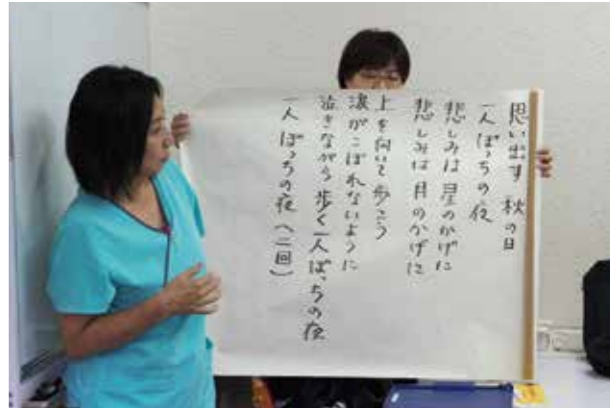 思い出す 秋の日
一人ぼっちの夜
悲しみは 星のかげに
悲しみは 月のかげに
上を向いて 歩こう
涙がこぼれないように
泣きながら 歩く 一人ぼっちの夜
一人 ぼっちの夜 (二回)